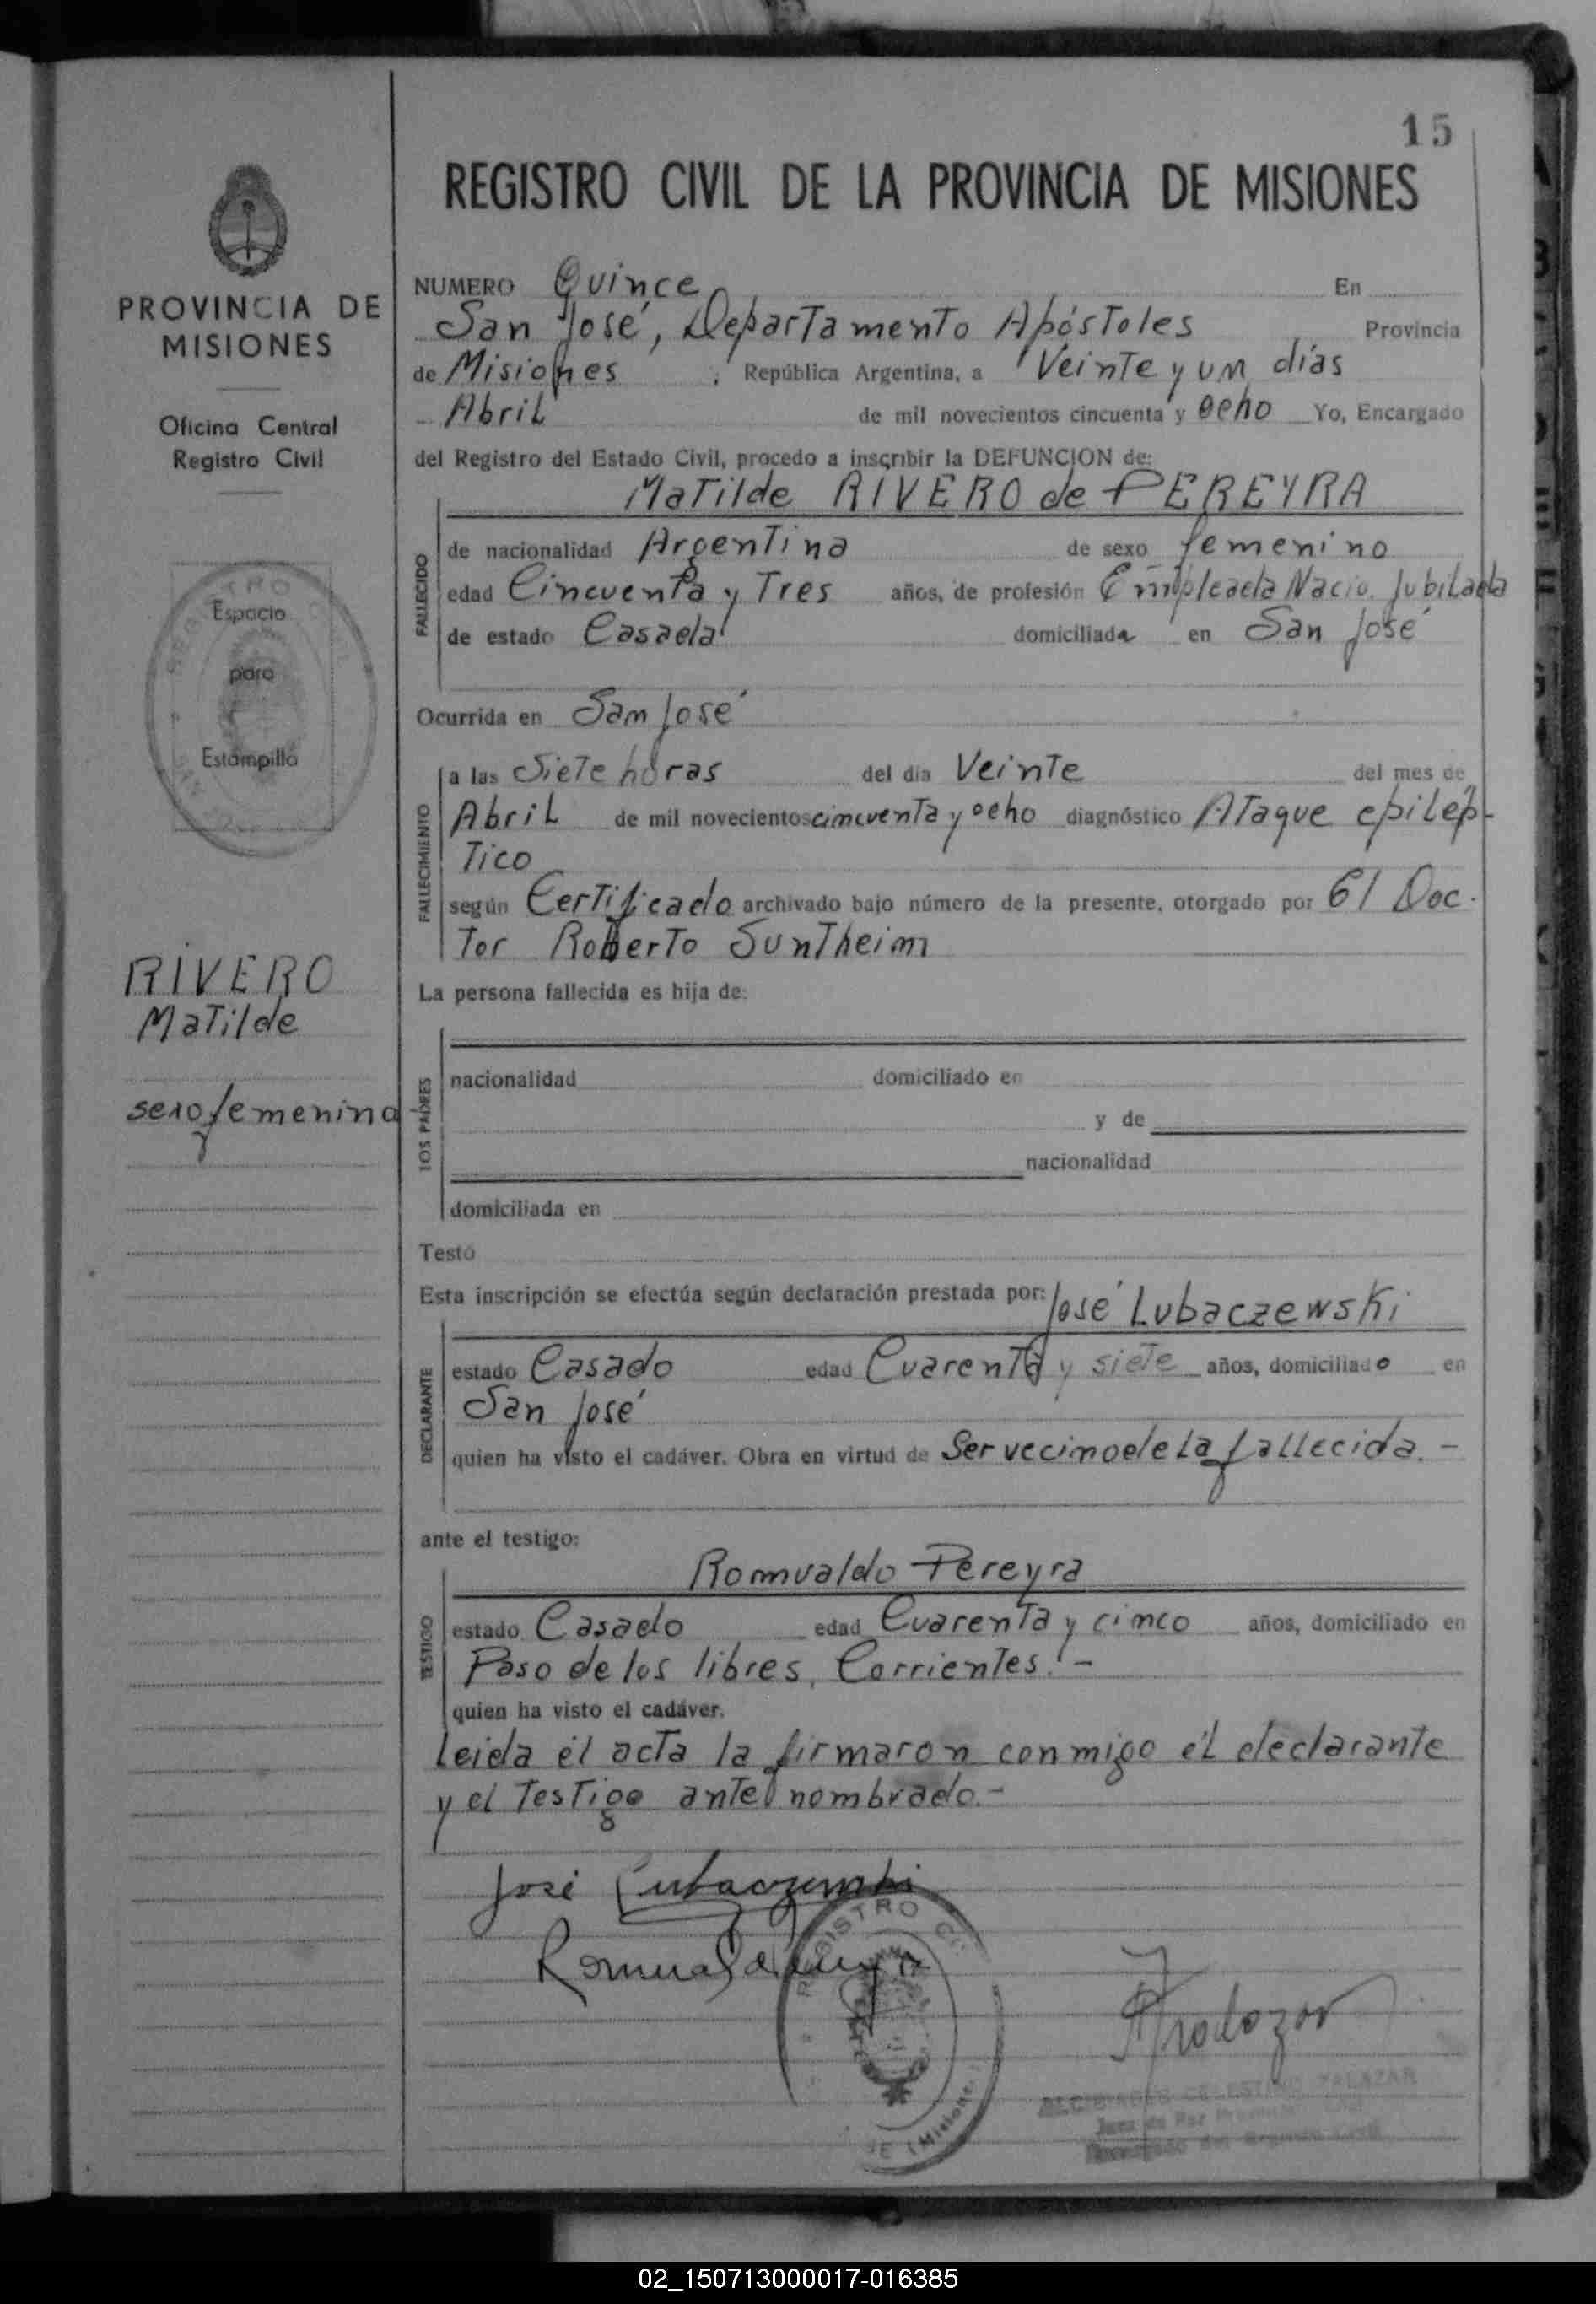 15
REGISTRO CIVIL DE LA PROVINCIA DE MISIONES
PROVINCIA DE
MISIONES
Oficina Central
Registro Civil
Espacio
para
Estampilla
RIVERO
Matilde
sexo femenina
NUMERO Quince En
San José, Departamento Apóstoles Provincia
de Misiones, República Argentina, a Veinte y un días
Abril de mil novecientos cincuenta y ocho Yo, Encargado
del Registro del Estado Civil, procedo a inscribir la DEFUNCION de:
Matilde RIVERO de PEREYRA
FALLECIDO
de nacionalidad Argentina de sexo femenino
edad Cincuenta y Tres años, de profesión Empleada Nacio. Jubilada
de estado Casada domiciliada en San José
Ocurrida en San José
FALLECIMIENTO
a las Siete horas del día Veinte del mes de
Abril de mil novecientos cincuenta y ocho diagnóstico Ataque epilép-
tico
según Certificado archivado bajo número de la presente, otorgado por El Doc.
tor Roberto Suntheim
La persona fallecida es hija de:
LOS PADRES
nacionalidad domiciliado en
y de
nacionalidad
domiciliada en
Testó
Esta inscripción se efectúa según declaración prestada por: José Lubaczewski
DECLARANTE
estado Casado edad Cuarenta y siete años, domiciliado en
San José
quien ha visto el cadáver. Obra en virtud de Ser vecino de la fallecida.-
ante el testigo:
Romualdo Pereyra
TESTIGO
estado Casado edad Cuarenta y cinco años, domiciliado en
Paso de los libres, Corrientes.-
quien ha visto el cadáver.
Leida él acta la firmaron conmigo él declarante
y el testigo ante nombrado.-
José Lubaczewski
Romualdo Pereyra
REGISTRO
(Misiones)
CELESTINO SALAZAR
Juez de Paz
Encargado del Registro Civil
02_150713000017-016385